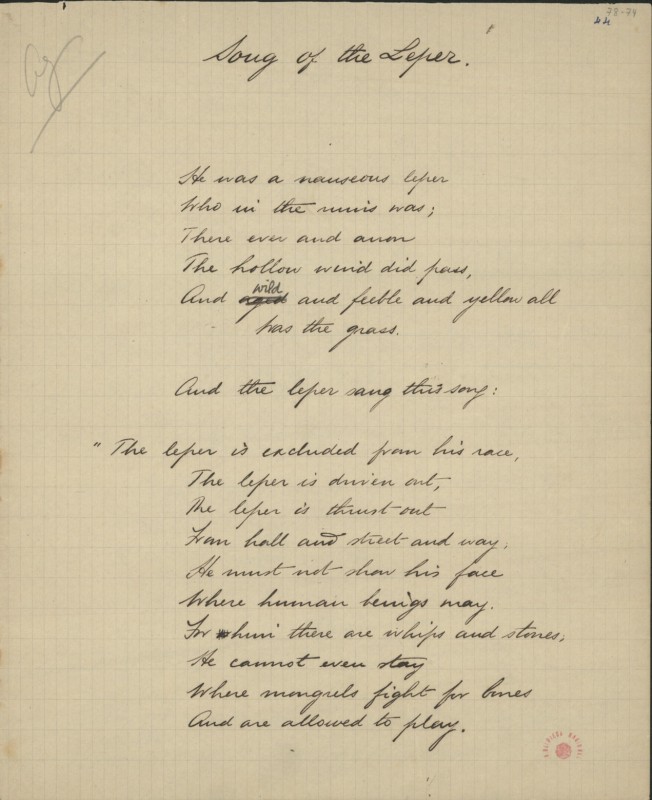 78-74
44
Song of the Leper.
He was a nauseous leper
Who in the ruins was;
There ever and anon
The hollow wind did pass,
And wild and feeble and yellow all
Was the grass.
And the leper sang this song:
"The leper is excluded from his race,
The leper is driven out,
The leper is thrust out
From hall and street and way;
He must not show his face
Where human beings may.
For him there are whips and stones;
He cannot even stay
Where mongrels fight for bones
And are allowed to play.